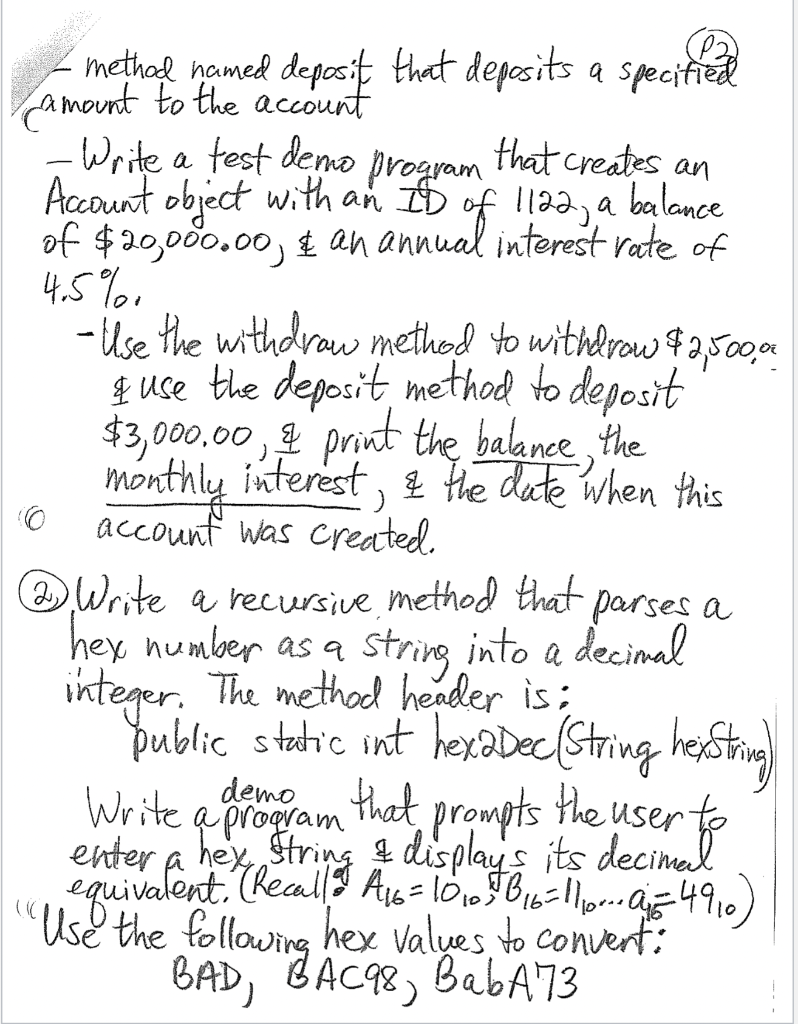 P2
- method named deposit that deposits a specified
amount to the account
- Write a test demo program that creates an
Account object with an ID of 1122, a balance
of $20,000.00, & an annual interest rate of
4.5%.
- Use the withdraw method to withdraw $2,500.00
& use the deposit method to deposit
$3,000.00, & print the balance, the
monthly interest, & the date when this
account was created.
2. Write a recursive method that parses a
hex number as a string into a decimal
integer. The method header is:
public static int hex2Dec(String hexString)
demo
Write a program that prompts the user to
enter a hex string & displays its decimal
equivalent. (Recall: A16 = 1010, B16 = 1110... a16 = 4910)
Use the following hex values to convert:
BAD, BAC98, BabA73